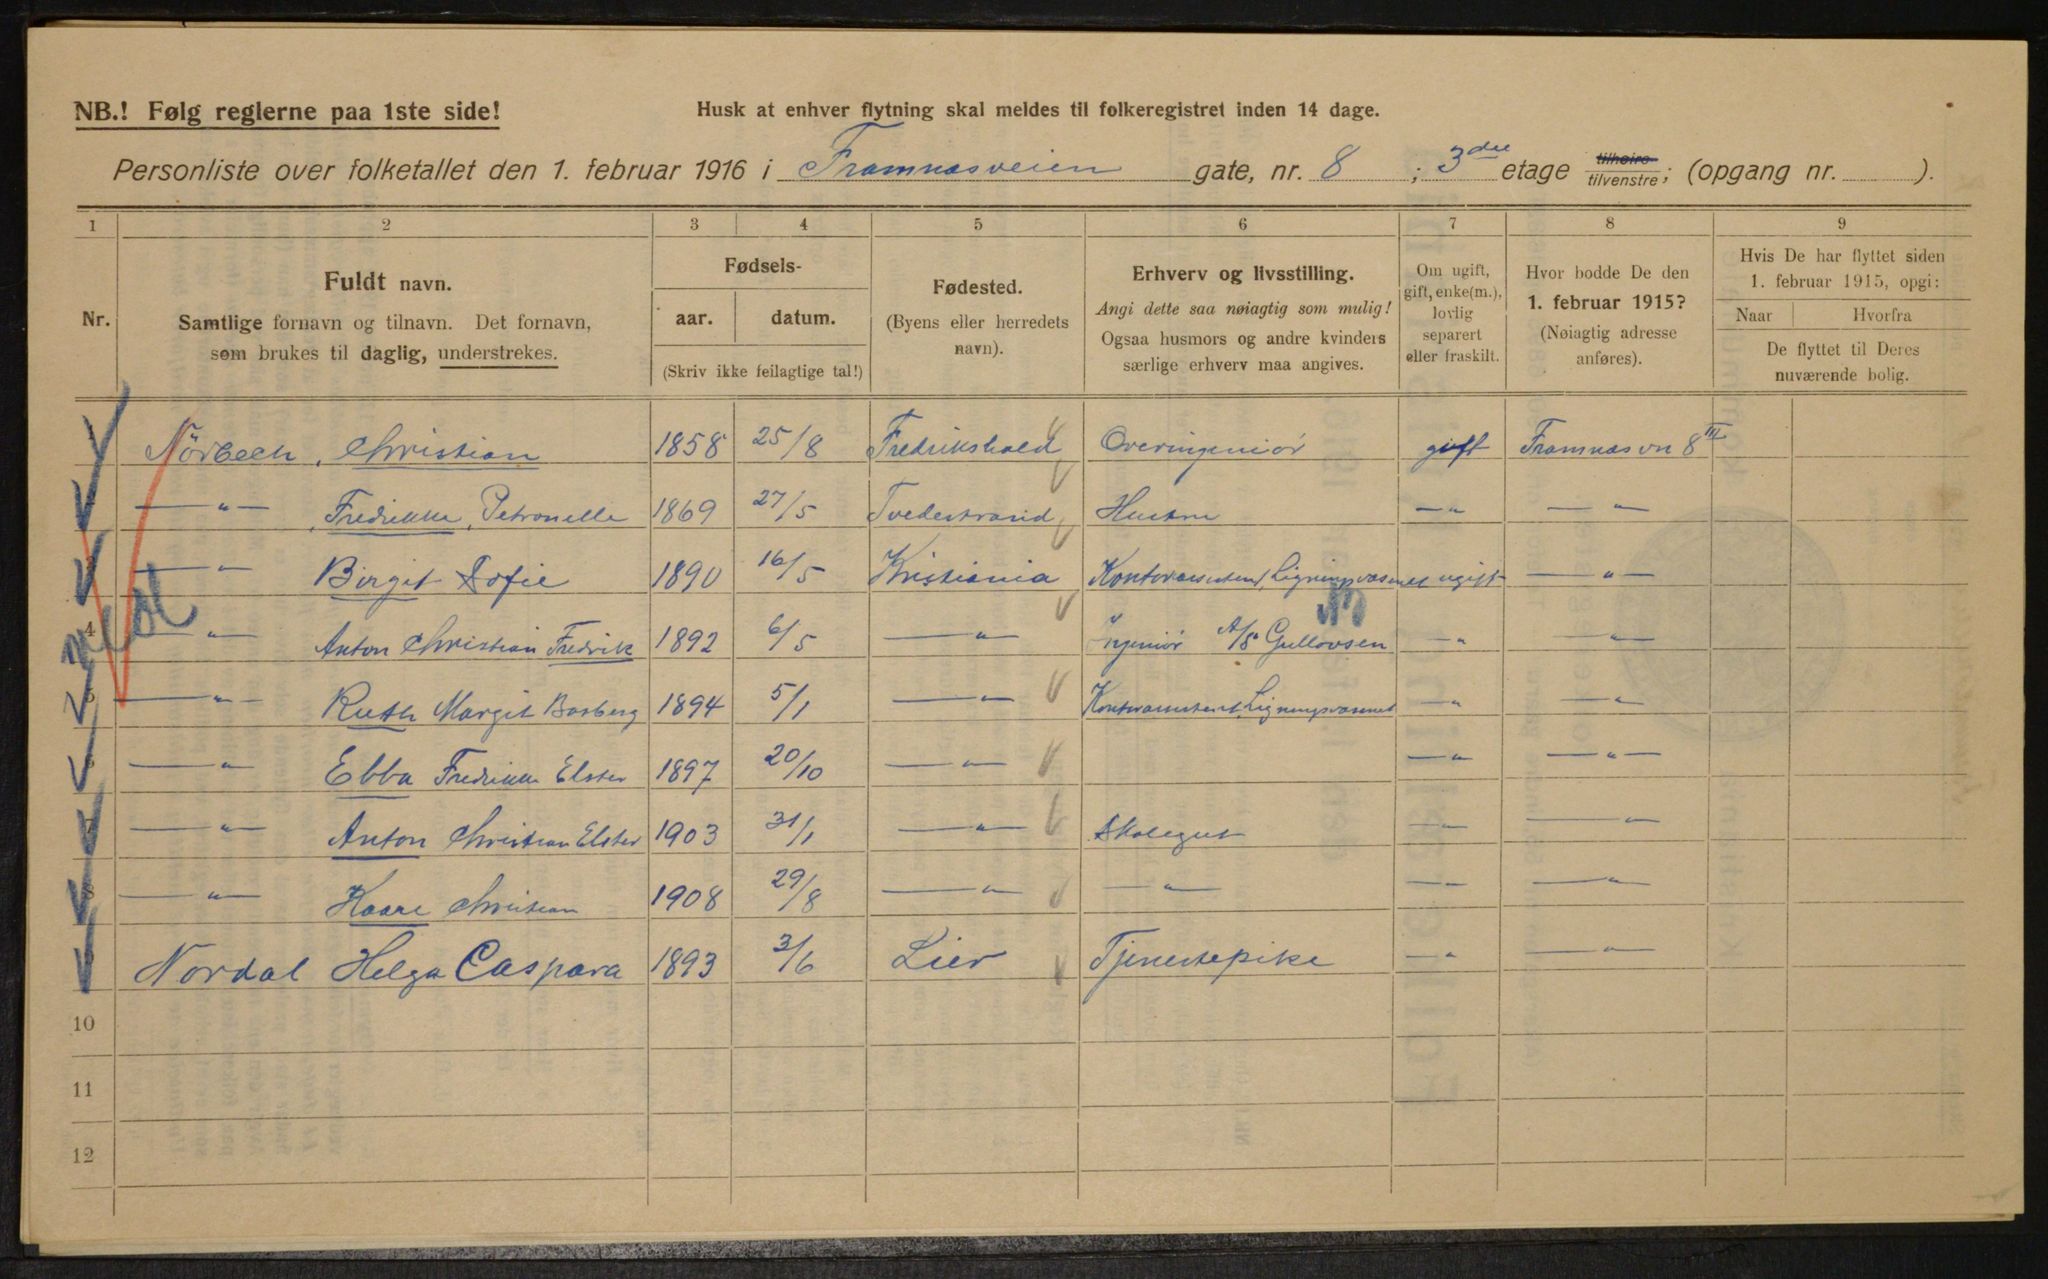 NB.! Følg reglerne paa 1ste side!
Husk at enhver flytning skal meldes til folkeregistret inden 14 dage.
Personliste over folketallet den 1. februar 1916 i Framnæsveien gate, nr. 8 ; 3die etage tilhøire tilvenstre; (opgang nr. ).
1 2 3 4 5 6 7 8 9
Nr.
Fuldt navn.
Samtlige fornavn og tilnavn. Det fornavn,
som brukes til daglig, understrekes.
Fødsels-
aar. datum.
(Skriv ikke feilagtige tal!)
Fødested.
(Byens eller herredets
navn).
Erhverv og livsstilling.
Angi dette saa nøiagtig som mulig!
Ogsaa husmors og andre kvinders
særlige erhverv maa angives.
Om ugift,
gift, enke(m.),
lovlig
separert
eller fraskilt.
Hvor bodde De den
1. februar 1915?
(Nøiagtig adresse
anføres).
Hvis De har flyttet siden
1. februar 1915, opgi:
Naar Hvorfra
De flyttet til Deres
nuværende bolig.
Nörbech, Christian 1858 25/8 Fredrikshald Overingeniør gift Framnæsvn 8 III
—"— Fredrikke, Petronelle 1869 27/5 Tvedestrand Hustru —"— —"—
—"— Birgit Sofie 1890 16/5 Kristiania Kontorassistent, Ligningsvæsenet ugift —"—
4 —"— Anton Christian Fredrik 1892 6/5 —"— Ingeniör A/S Gullovsen —"— —"—
—"— Ruth Margit Borberg 1894 5/1 —"— Kontorassistent Ligningsvæsenet —"— —"—
—"— Ebba Fredrikke Elster 1897 20/10 —"— —"— —"—
7 —"— Anton Christian Elster 1903 31/1 —"— Skolegut —"— —"—
—"— Kaare Christian 1908 29/8 —"— —"— —"— —"—
Nordal Helga Caspara 1893 3/6 Lier Tjenestepike —"— —"—
10
11
12